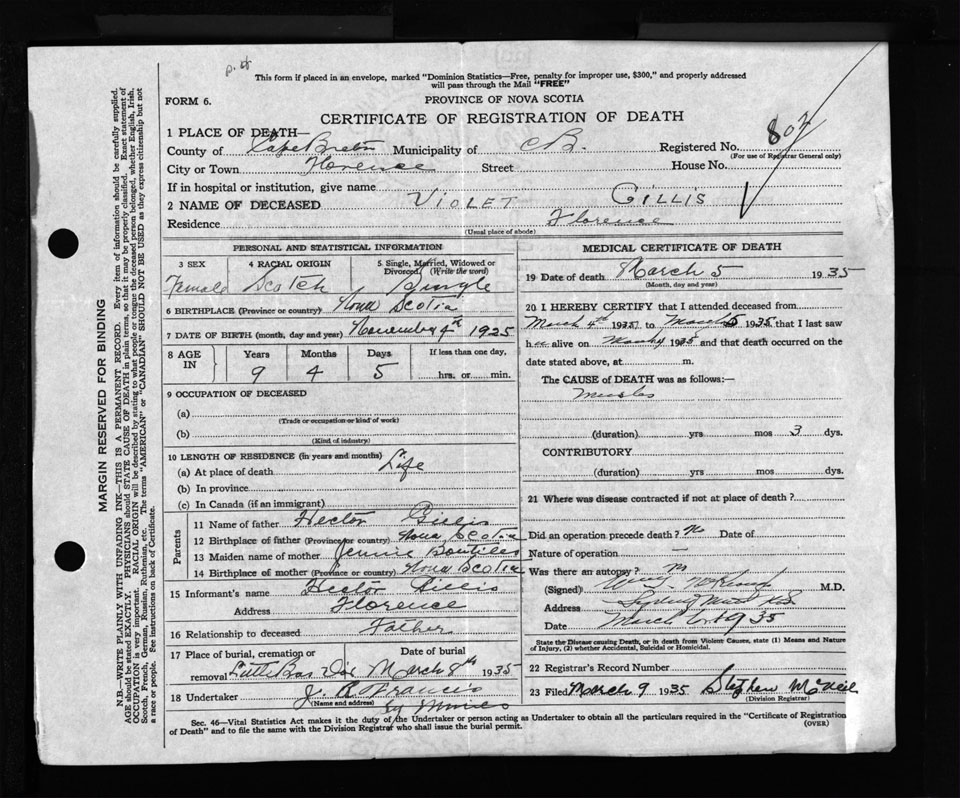 This form if placed in an envelope, marked "Dominion Statistics—Free, penalty for improper use, $300," and properly addressed
will pass through the Mail "FREE"
FORM 6.
PROVINCE OF NOVA SCOTIA
CERTIFICATE OF REGISTRATION OF DEATH
807
1 PLACE OF DEATH—
County of Cape Breton Municipality of C B. Registered No.
(For use of Registrar General only)
City or Town Florence Street House No.
If in hospital or institution, give name
2 NAME OF DECEASED VIOLET GILLIS
Residence Florence
(Usual place of abode)
PERSONAL AND STATISTICAL INFORMATION
3 SEX 4 RACIAL ORIGIN 5 Single, Married, Widowed or Divorced (Write the word)
Female Scotch Single
6 BIRTHPLACE (Province or country) Nova Scotia
7 DATE OF BIRTH (month, day and year) November 4th 1925
8 AGE IN Years Months Days If less than one day,
9 4 5 hrs. or min.
9 OCCUPATION OF DECEASED
(a)
(Trade or occupation or kind of work)
(b)
(Kind of industry)
10 LENGTH OF RESIDENCE (in years and months)
(a) At place of death Life
(b) In province
(c) In Canada (if an immigrant)
Parents
11 Name of father Hector Gillis
12 Birthplace of father (Province or country) Nova Scotia
13 Maiden name of mother Jennie Boutilier
14 Birthplace of mother (Province or country) Nova Scotia
15 Informant's name Hector Gillis
Address Florence
16 Relationship to deceased Father
17 Place of burial, cremation or removal Date of burial
Little Bras Dor March 8th 1935
18 Undertaker J. R Francis
(Name and address) Sy Mines
MEDICAL CERTIFICATE OF DEATH
19 Date of death March 5 1935
(Month, day and year)
20 I HEREBY CERTIFY that I attended deceased from
March 4th 1935 to March 5 1935 that I last saw
h er alive on March 1935 and that death occurred on the
date stated above, at m.
The CAUSE of DEATH was as follows:—
Measles
(duration) yrs mos 3 dys.
CONTRIBUTORY
(duration) yrs mos dys.
21 Where was disease contracted if not at place of death?
Did an operation precede death? No Date of
Nature of operation —
Was there an autopsy? No
(Signed) M.D.
Address Sydney Mines N.S.
Date March 6th 1935
State the Disease causing Death, or in death from Violent Causes, state (1) Means and Nature
of Injury, (2) whether Accidental, Suicidal or Homicidal.
22 Registrar's Record Number
23 Filed March 9 1935 Stephen McNeil
(Division Registrar)
Sec. 46—Vital Statistics Act makes it the duty of the Undertaker or person acting as Undertaker to obtain all the particulars required in the "Certificate of Registration
of Death" and to file the same with the Division Registrar who shall issue the burial permit.
(OVER)
MARGIN RESERVED FOR BINDING
N.B.—WRITE PLAINLY WITH UNFADING INK—THIS IS A PERMANENT RECORD. Every item of information should be carefully supplied.
AGE should be stated EXACTLY. PHYSICIANS should STATE CAUSE OF DEATH in plain terms, so that it may be properly classified. Exact statement of
OCCUPATION is very important. RACIAL ORIGIN will be described by stating to what people or tongue the deceased person belonged, whether English, Irish,
Scotch, French, German, Russian, Ruthenian, etc. The terms "AMERICAN" or "CANADIAN" SHOULD NOT BE USED as they express citizenship but not
a race or people. See instructions on back of Certificate.